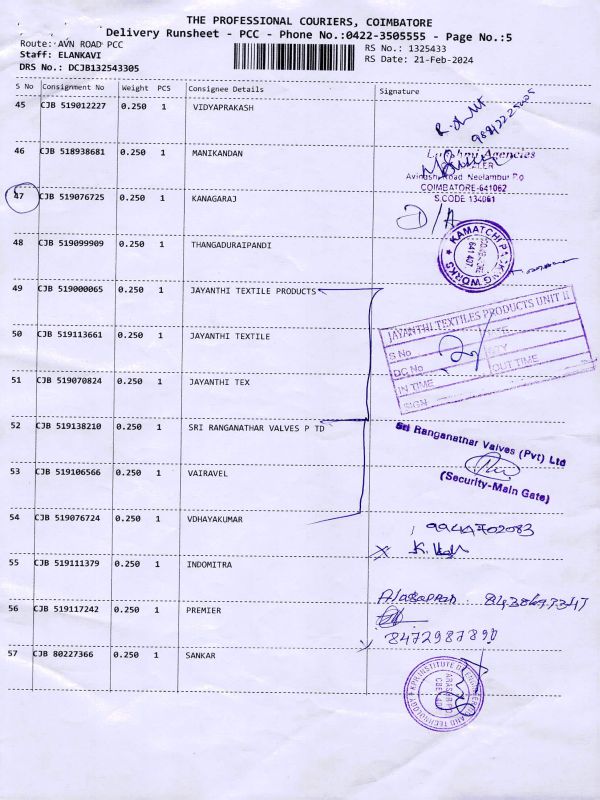 THE PROFESSIONAL COURIERS, COIMBATORE
Delivery Runsheet - PCC - Phone No.:0422-3505555 - Page No.:5
Route: AVN ROAD PCC
Staff: ELANKAVI
DRS No.: DCJB132543305
RS No.: 1325433
RS Date: 21-Feb-2024
S No Consignment No Weight PCS Consignee Details Signature
45 CJB 519012227 0.250 1 VIDYAPRAKASH
46 CJB 518938681 0.250 1 MANIKANDAN
Agencies
Avinashi Road Neelambur P.o
COIMBATORE-641062
S.CODE 134061
47 CJB 519076725 0.250 1 KANAGARAJ
D/A
48 CJB 519099909 0.250 1 THANGADURAIPANDI
KAMATCHI PACKING WORKS
641 407
49 CJB 519000065 1 0.250 1 JAYANTHI TEXTILE PRODUCTS
JAYANTHI TEXTILES PRODUCTS UNIT II
S No
DC No QTY
IN TIME OUT TIME
SIGN
50 CJB 519113661 0.250 1 JAYANTHI TEXTILE
51 CJB 519070824 0.250 1 JAYANTHI TEX
52 CJB 519138210 0.250 1 SRI RANGANATHAR VALVES P TD
Sri Ranganathar Valves (Pvt) Ltd
(Security-Main Gate)
53 CJB 519106566 0.250 1 VAIRAVEL
54 CJB 519076724 0.250 1 VDHAYAKUMAR
9944702083
55 CJB 519111379 0.250 1 INDOMITRA
56 CJB 519117242 0.250 1 PREMIER
8472987890
57 CJB 80227366 0.250 1 SANKAR
KPR INSTITUTE OF ENGINEERING AND TECHNOLOGY